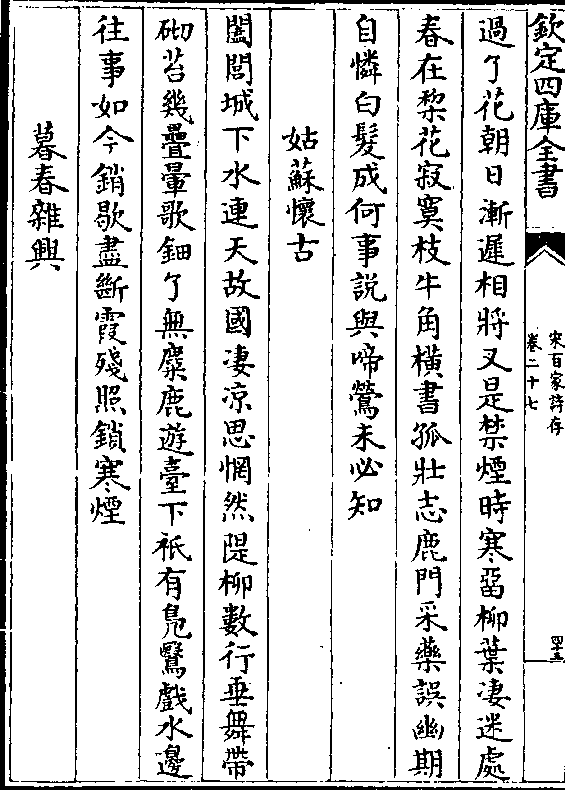 欽定四庫全書
宋百家詩存
卷二十七
四十五
過了花朝日漸遲相將又是禁煙時寒留柳葉凄迷處
春在梨花寂寞枝牛角橫書孤壯志鹿門采藥誤幽期
自憐白髮成何事說與啼鶯未必知
姑蘇懷古
闔閭城下水連天故國凄凉思惘然隄柳數行垂舞帶
砌苔幾疊暈歌鈿了無麋鹿遊臺下祇有鳬鷖戲水邊
往事如今銷歇盡斷霞殘照鎖寒煙
暮春雜興